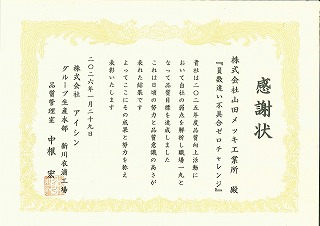 感謝状
株式会社山田メッキ工業所 殿
『員数違い不具合ゼロチャレンジ』
貴社は二〇二五年度品質向上活動に
おいて自社の弱点を解析し職場一丸と
なって品質目標を達成しました
これは日頃の努力と品質意識の高さが
表れた結果です
よってここにその成果と努力を称え
表彰いたします
二〇二六年一月二十九日
株式会社 アイシン
グループ生産本部 新川衣浦工場
品質管理室 中根 宏